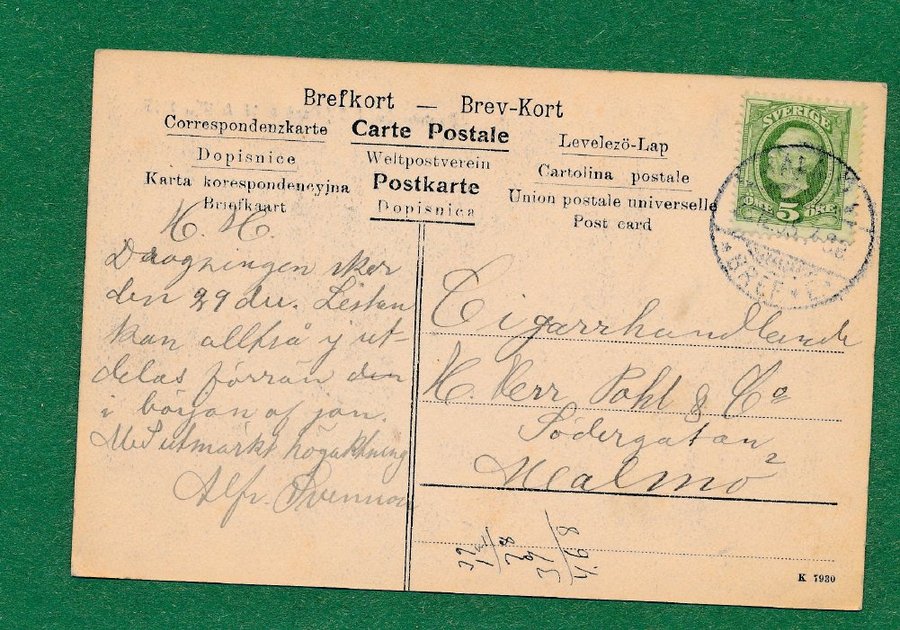 Brefkort — Brev-Kort
Correspondenzkarte Carte Postale Levelezö-Lap
Dopisnice Weltpostverein Cartolina postale
Karta korespondencyjna Postkarte Union postale universelle
Briefkaart Dopisnica Post card
SVERIGE
5 ÖRE
H. H.
Dragningen sker
den 29 du. Listan
kan alltså ej ut-
delas förrän den
i början af jan.
Med utmärkt högaktning
Alfr.
Cigarrhandlande
H. Herr Pohl & Co
Södergatan
2
Malmö
K 7930